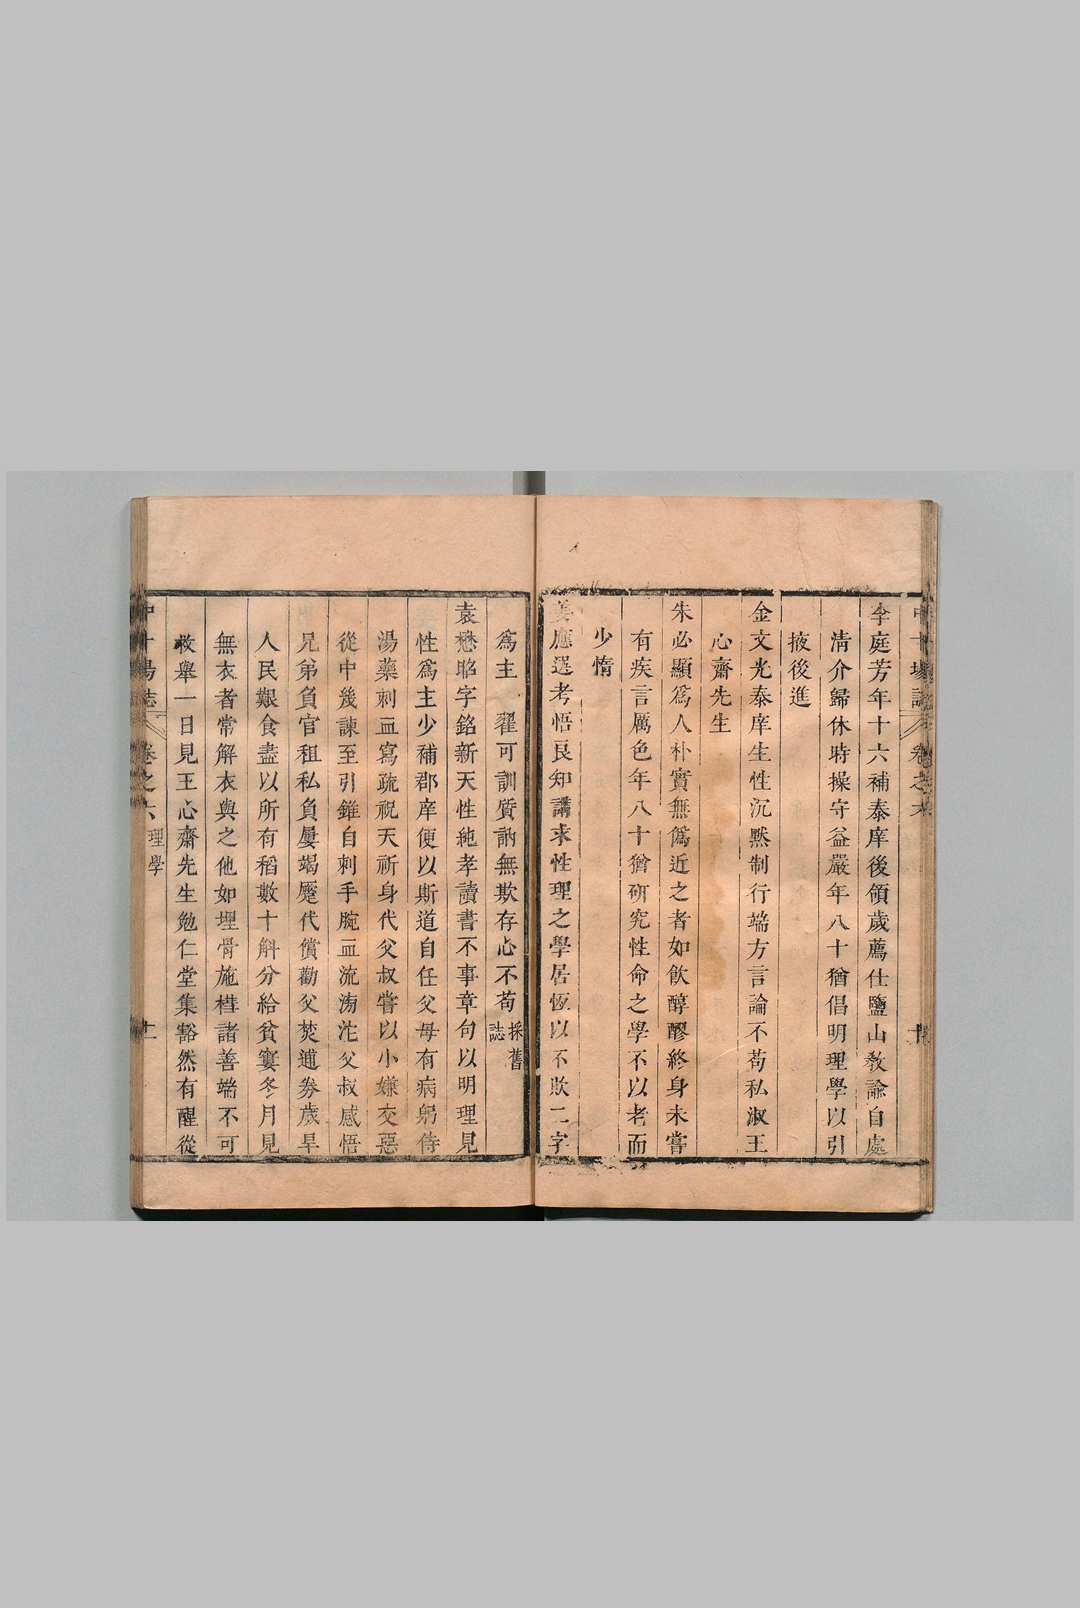 李庭芳年十六補泰庠後領歲薦仕鹽山敎諭自處
清介歸休時操守益嚴年八十猶倡明理學以引
掖後進
金文光泰庠生性沉黙制行端方言論不苟私淑王
心齋先生
朱必顯爲人朴實無僞近之者如飮醇醪終身未嘗
有疾言厲色年八十猶硏究性命之學不以老而
少惰
姜應選考悟良知講求性理之學居恆以不欺二字
爲主 翟可訓質訥無欺存心不苟採舊誌
袁懋昭字銘新天性純孝讀書不事章句以明理見
性爲主少補郡庠便以斯道自任父母有病躬侍
湯藥刺血寫疏祝天祈身代父叔嘗以小嫌交惡
從中幾諫至引錐自刺手腕血流滂沱父叔感悟
兄弟負官租私負屢竭蹷代償勸父焚逋劵歲旱
人民艱食盡以所有稻數十斛分給貧寠冬月見
無衣者常解衣與之他如埋骨施槥諸善端不可
枚舉一日見王心齋先生勉仁堂集豁然有醒從
中十場誌 卷之六 理學 十一